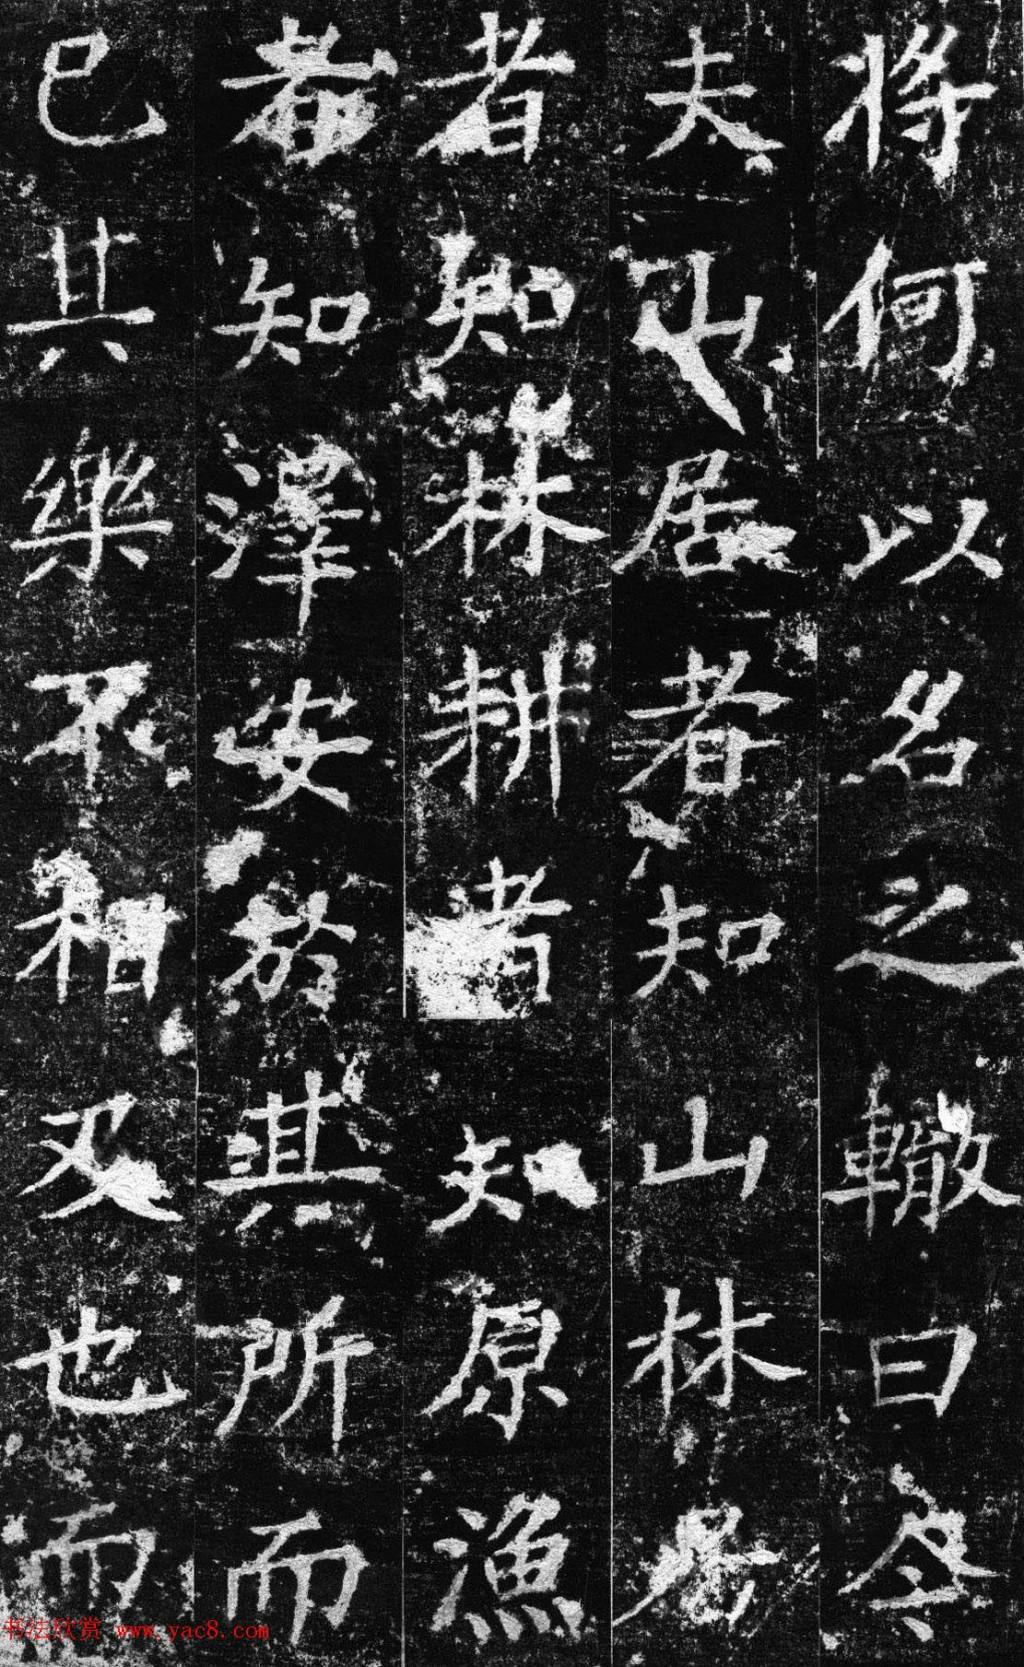 将何以名之轍曰今
夫山居者知山林居
者知林耕者知原漁
者知澤安於其所而
已其樂不相及也而
书法欣赏 www.yac8.com